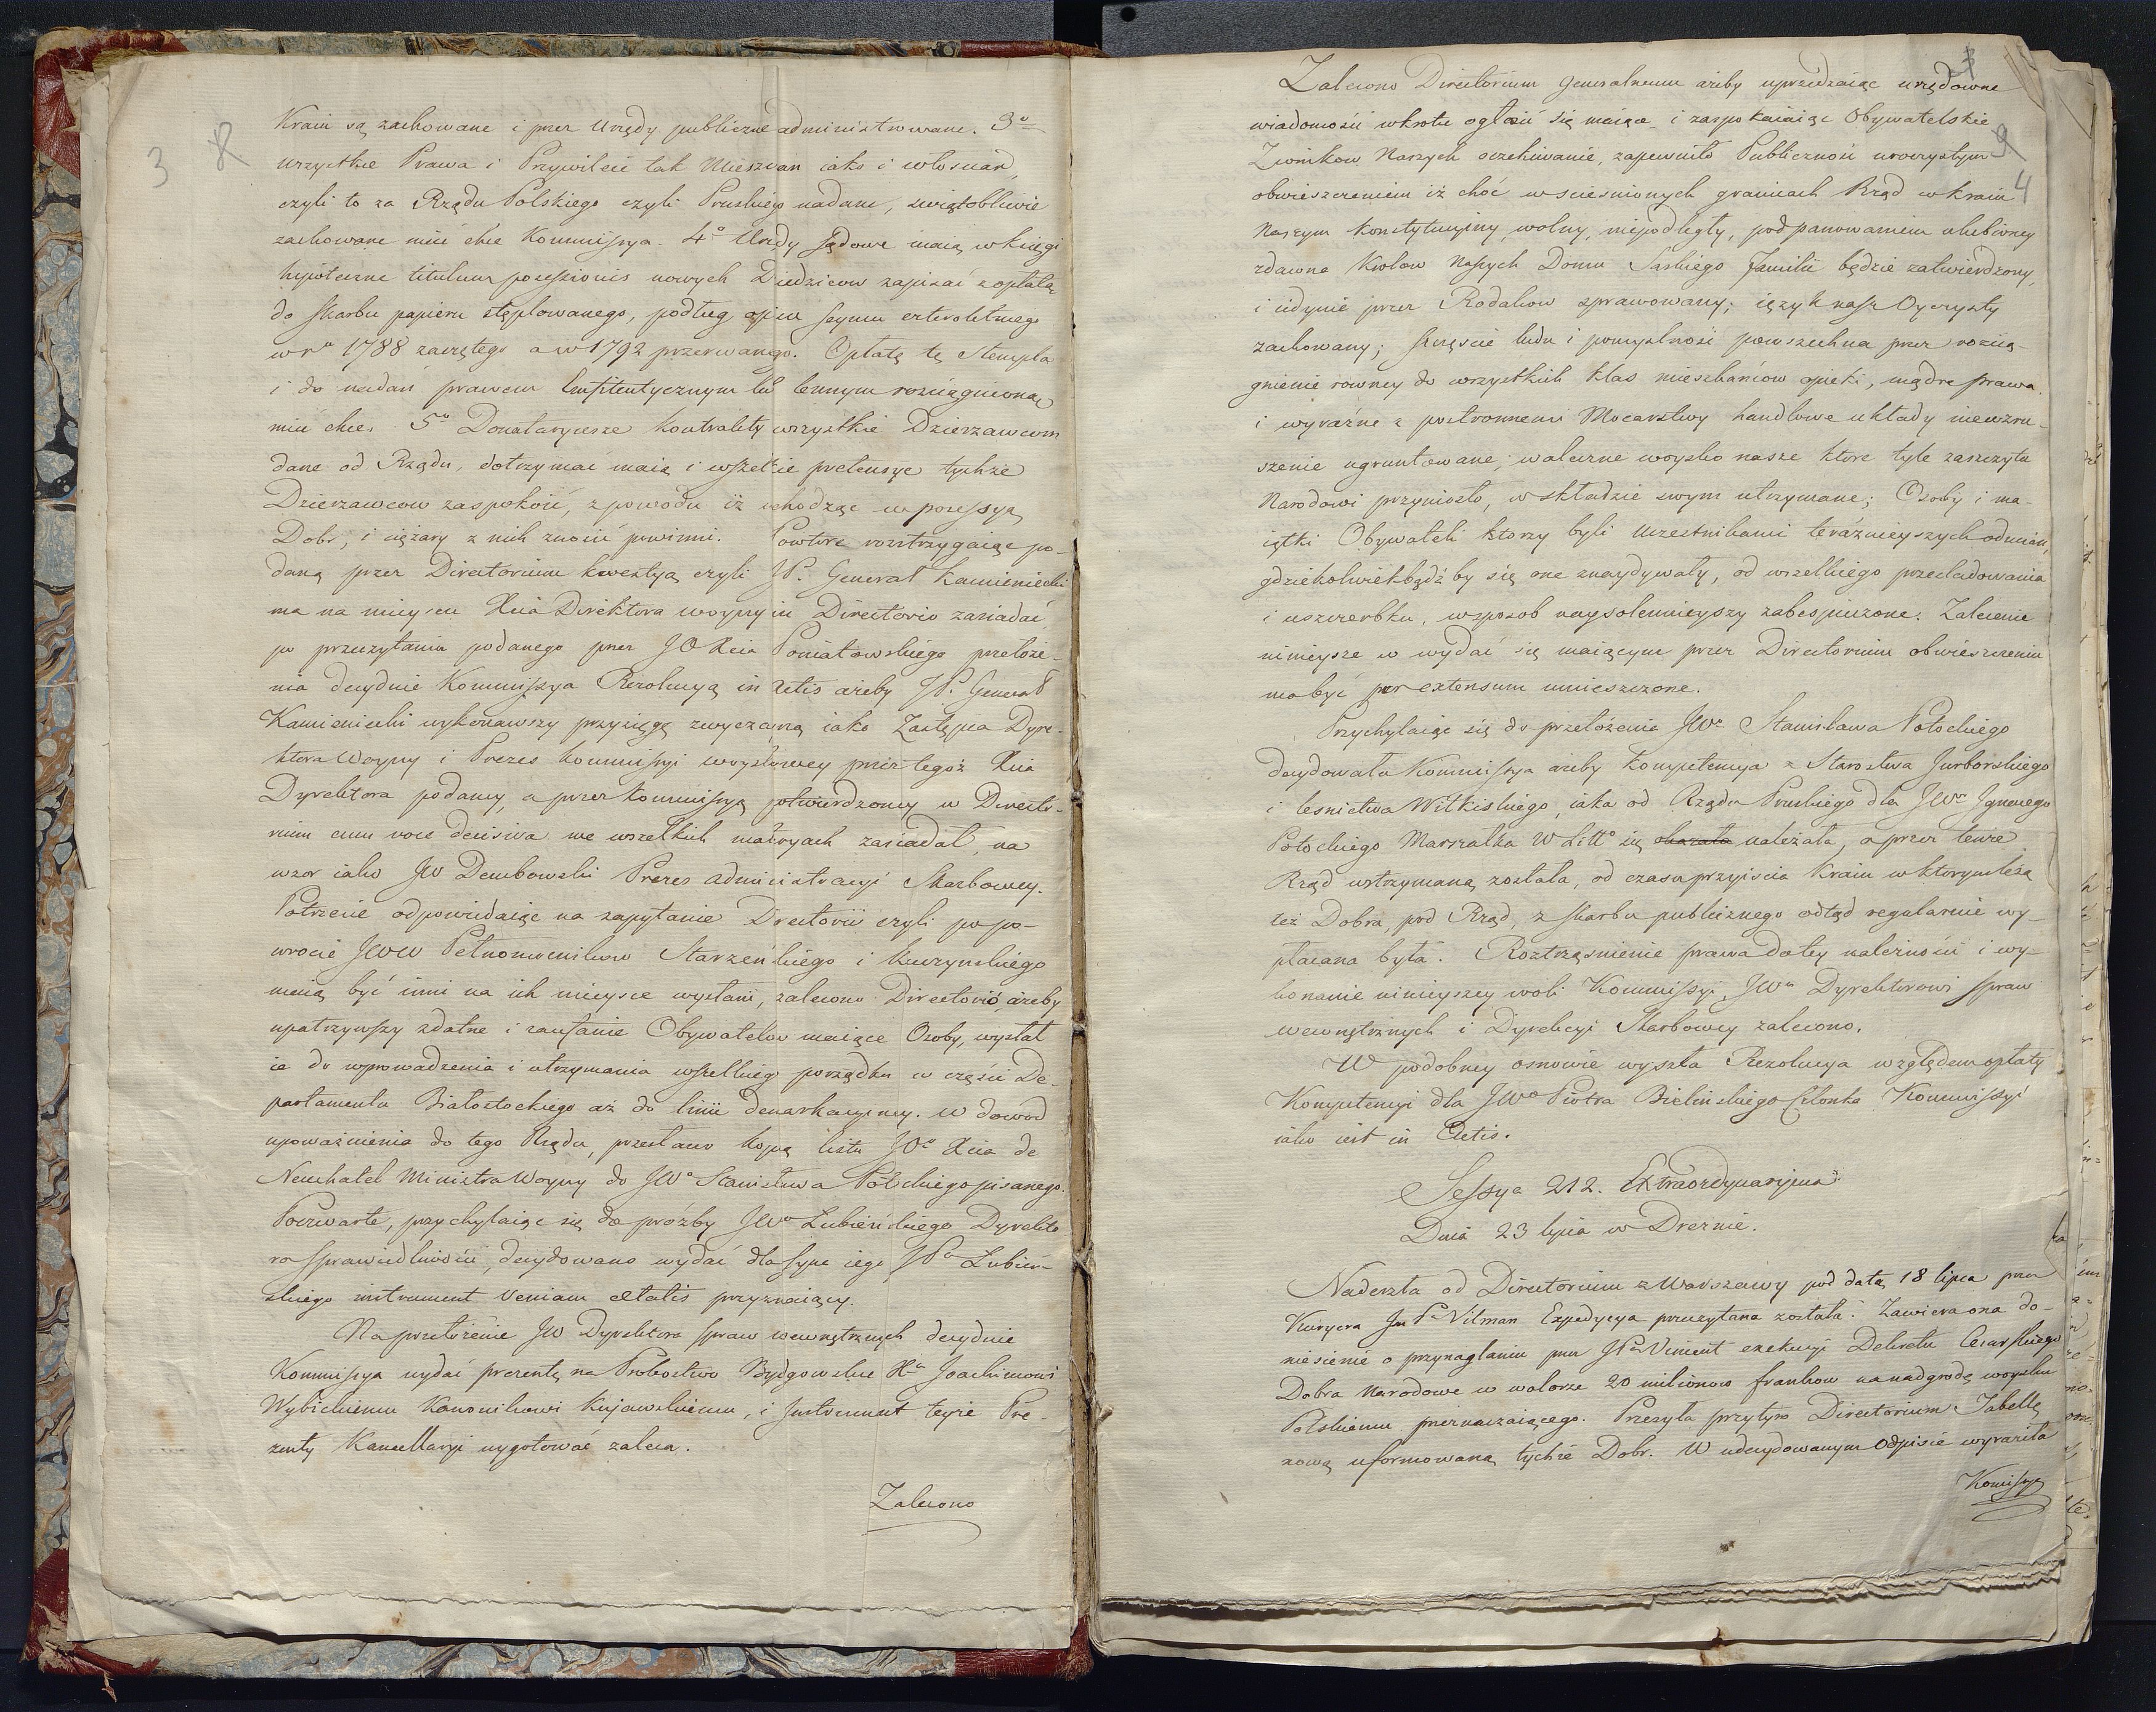 3 8
Kraiu są zachowane i przez Urzędy publiczne administrowane. 3º
wszystkie Prawa i Przywileie tak Mieszczan iako i włoscian,
czyli to za Rządu Polskiego czyli Pruskiego nadane, swiątobliwie
zachowane mieć chce Kommissya. 4º Urzędy sądowe maią w księgi
hipoteczne titulum possessionis nowych Dziedzicow zapisać z opłatą
do skarbu papieru stęplowanego, podług opisu seymu czteroletniego
w rº 1788 zaczętego a w 1792 przerwanego. Opłatę tę Stempla
i do nadań prawem Emfiteutycznym lub lennym rozciągnioną
mieć chce. 5º Donataryusze kontrakty wszystkie Dzierzawcom
dane od Rządu, dotrzymać maią i wszelkie pretensye tychże
Dzierzawcow zaspokoić, z powodu iż wchodząc w possessyą
Dobr, i ciężary z nich znosić powinni. Powtore rozstrzygaiąc po-
daną przez Directorium kwestyą czyli JP. Generał Kamieniecki
ma na mieyscu Xcia Direktora woyny in Directorio zasiadać,
po przeczytaniu podanego przez JO Xcia Poniatowskiego przełoże-
nia decyduie Kommissya Rezolucyą in Actis ażeby JP. Generał
Kamieniecki wykonawszy przysięgę zwyczayną iako Zastępca Dyre-
ktora Woyny i Prezes Kommissyi woyskowey przez tegoż Xcia
Dyrektora podaney, a przez Kommissyą potwierdzoney w Directo-
rium cum voce decisiva we wszelkich materyach zasiadał, na
wzor iako JW Dembowski Prezes Administracyi Skarbowey.
Potrzecie odpowiadaiąc na zapytanie Directorii czyli po po-
wrocie JWW Pełnomocnikow Starzeńskiego i Kuczynskiego
maią być inni na ich mieysce wysłani, zalecono Directorio, ażeby
upatrzywszy zdatne i zaufanie Obywatelow maiące Osoby, wysłał
ie do wprowadzenia i utrzymania wszelkiego porządku w części De-
partamentu Białostockiego aż do linii demarkacyiney. W dowod
upoważnienia do tego Rządu, przesłano kopią listu JOº Xcia de
Neuchatel Ministra Woyny do JWº Stanisława Potockiego pisanego.
Poczwarte, przychylaiąc się do prożby JWº Łubieńskiego Dyrekto
ra sprawiedliwości, decydowano wydać dla syna iego JPª Łubień-
skiego instrument veniam aetatis przyznaiący.
Na przełożenie JW Dyrektora spraw wewnętrznych decyduie
Kommissya wydać prezentę na Probostwo Bydgowskie Xª Joachimowi
Wybickiemu Kanonikowi Kujawskiemu, i Instrument teyże Pre-
zenty Kancellaryi wygotować zaleca.
Zalecono
9
4
Zalecono Directorium Generalnemu ażeby uprzedzaiąc urzędowne
wiadomości wkrotce ogłosić się maiące i zaspokaiaiąc Obywatelskie
Ziomkow Naszych oczekiwanie, zapewniło Publiczność uroczystym
obwieszczeniem iż choć w scieśnionych granicach Rząd w kraiu
Naszym Konstytucyiny, wolny, niepodległy, pod panowaniem ulubioney
zdawna Krolow Naszych Domu Saskiego familii będzie zatwierdzony,
i iedynie przez Rodakow sprawowany; ięzyk nasz Oyczysty
zachowany; szczęście ludu i pomyślność powszechna przez rozcią-
gnienie rowney do wszystkich klas mieszkańcow opieki, mądre prawa
i wyraźne z postronnemi Mocarstwy handlowe układy niewzru-
szenie ugruntowane; waleczne woysko nasze ktore tyle zaszczytu
Narodowi przyniosło, w składzie swym utrzymane; Osoby i ma-
iątki Obywateli ktorzy byli uczestnikami teraźnieyszych odmian,
gdziekolwiekbądź by się one znaydywały, od wszelkiego przesladowania
i uszczerbku, w sposob naysolennieyszy zabespieczone. Zalecenie
ninieysze w wydać się maiącym przez Directorium obwieszczeniu
ma być per extensum umieszczone.
Przychylaiąc się do przełożenia JWº Stanisława Potockiego
decydowała Kommissya ażeby kompetencya z Starostwa Jurborskiego
i lesnictwa Wilkiskiego, iaka od Rządu Pruskiego dla JWº Ignacego
Potockiego Marszałka W Littº się okazała należała, a przez tenże
Rząd wstrzymaną została, od czasu przyiścia Kraiu w ktorym leżą
też Dobra, pod Rząd, z skarbu publicznego odtąd regularnie wy-
płacana była. Roztrząśnienie prawa do tey należności i wy-
konanie ninieyszey woli Kommissyi, JWº Dyrektorowi spraw
wewnętrznych i Dyrekcyi Skarbowey zalecono.
W podobney osnowie wyszła Rezolucya względem opłaty
Kompetencyi dla JWº Piotra Bielinskiego Członka Kommissyi
iako iest in Actis.
Sessya 212. Extraordynaryina
Dnia 23 lipca w Dreznie.
Nadeszła od Directorium z Warszawy pod datą 18 lipca przez
Kuryera Jm P. Vilman Expedycya przeczytana została. Zawiera ona do-
niesienie o przynaglaniu przez JPª Vincent exekucyi Dekretu Cesarskiego
Dobra Narodowe w walorze 20 milionow frankow na nadgrodę woysku
Polskiemu przeznaczaiącego. Przesyła przytym Directorium Tabellę
nową uformowaną tychże Dobr. W udecydowanym odpisie wyraziła
Komissya